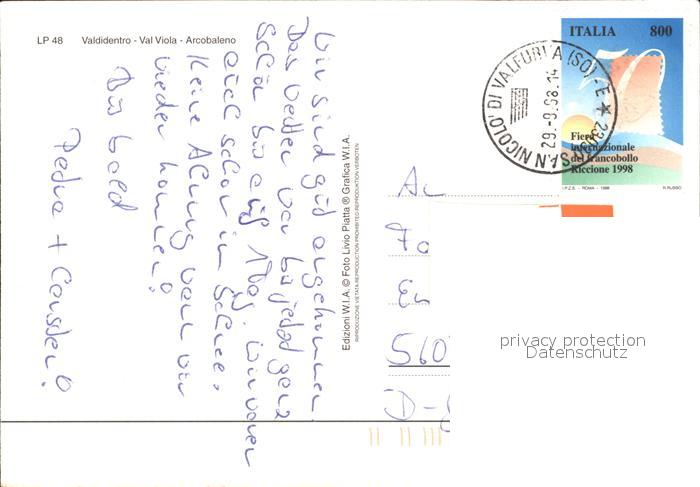 LP 48 Valdidentro - Val Viola - Arcobaleno
Wir sind gut angekommen.
Das Wetter war bis jetzt ganz
schön bis auf 1 Tag. Wir waren
auch schon im Schnee.
Keine Ahnung wann wir
wieder kommen!
Bis bald
Petra + Carsten!
Edizioni W.I.A. © Foto Livio Piatta ® Grafica W.I.A.
RIPRODUZIONE VIETATA-REPRODUCTION PROHIBITED-REPRODUKTION VERBOTEN
ITALIA 800
50
Fiera
internazionale
del francobollo
Riccione 1998
I.P.Z.S. - ROMA - 1998 R. RUSSO
SAN NICOLO' DI VALFURVA (SO)
29.-9.98.14
An
Fa
En
560
D-
privacy protection
Datenschutz